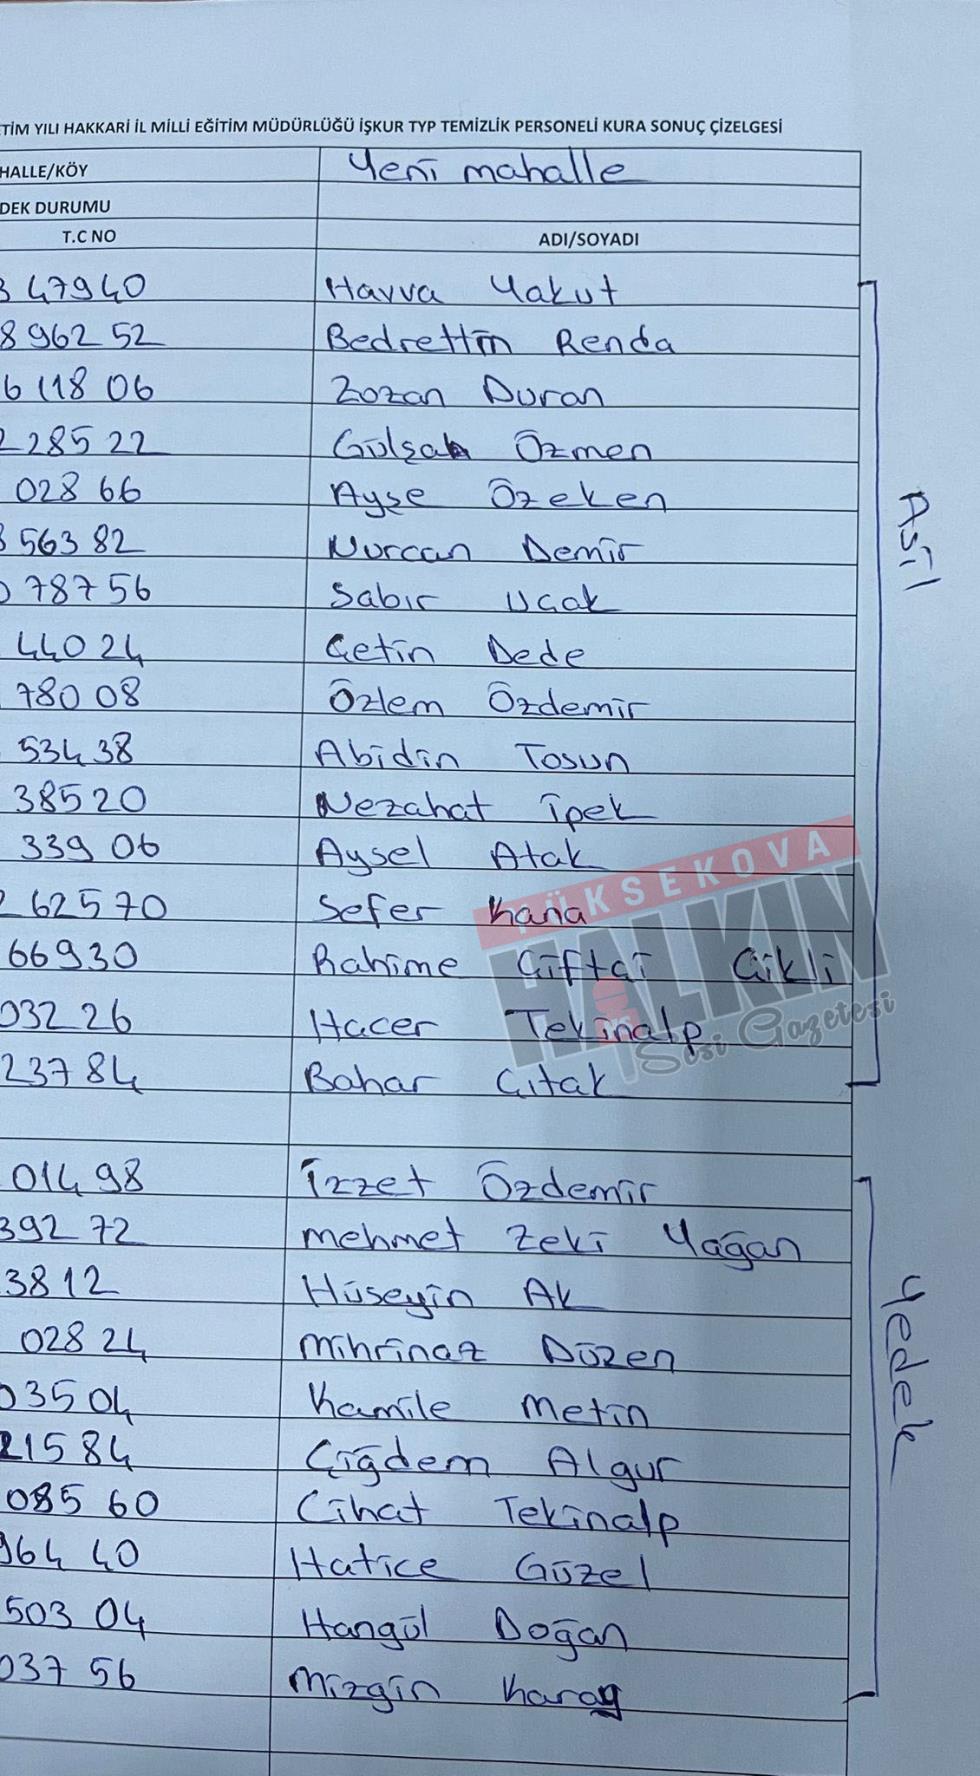 TİM YILI HAKKARİ İL MİLLİ EĞİTİM MÜDÜRLÜĞÜ İŞKUR TYP TEMİZLİK PERSONELİ KURA SONUÇ ÇİZELGESİ
HALLE/KÖY Yeni mahalle
DEK DURUMU
T.C NO ADI/SOYADI
3 47940 Havva Yakut
8 962 52 Bedrettin Renda
6 118 06 Zozan Duran
2 285 22 Gülşah Özmen
028 66 Ayşe Özeken
3 563 82 Nurcan Demir
0 787 56 Sabır Ucak
440 24 Çetin Dede
780 08 Özlem Özdemir
534 38 Abidin Tosun
385 20 Nezahat İpek
339 06 Aysel Atak
2 625 70 Sefer Kana
66930 Rahime Çiftçi Çikli
032 26 Hacer Tekinalp
237 84 Bahar Çıtak
Asil
014 98 İzzet Özdemir
392 72 Mehmet Zeki Yağan
38 12 Hüseyin Ak
028 24 Mihrinaz Düzen
035 04 Kamile Metin
215 84 Çiğdem Algur
085 60 Cihat Tekinalp
964 40 Hatice Güzel
503 04 Hangül Doğan
037 56 Mizgin
Yedek
YÜKSEKOVA
HALKIN
Sesi Gazetesi